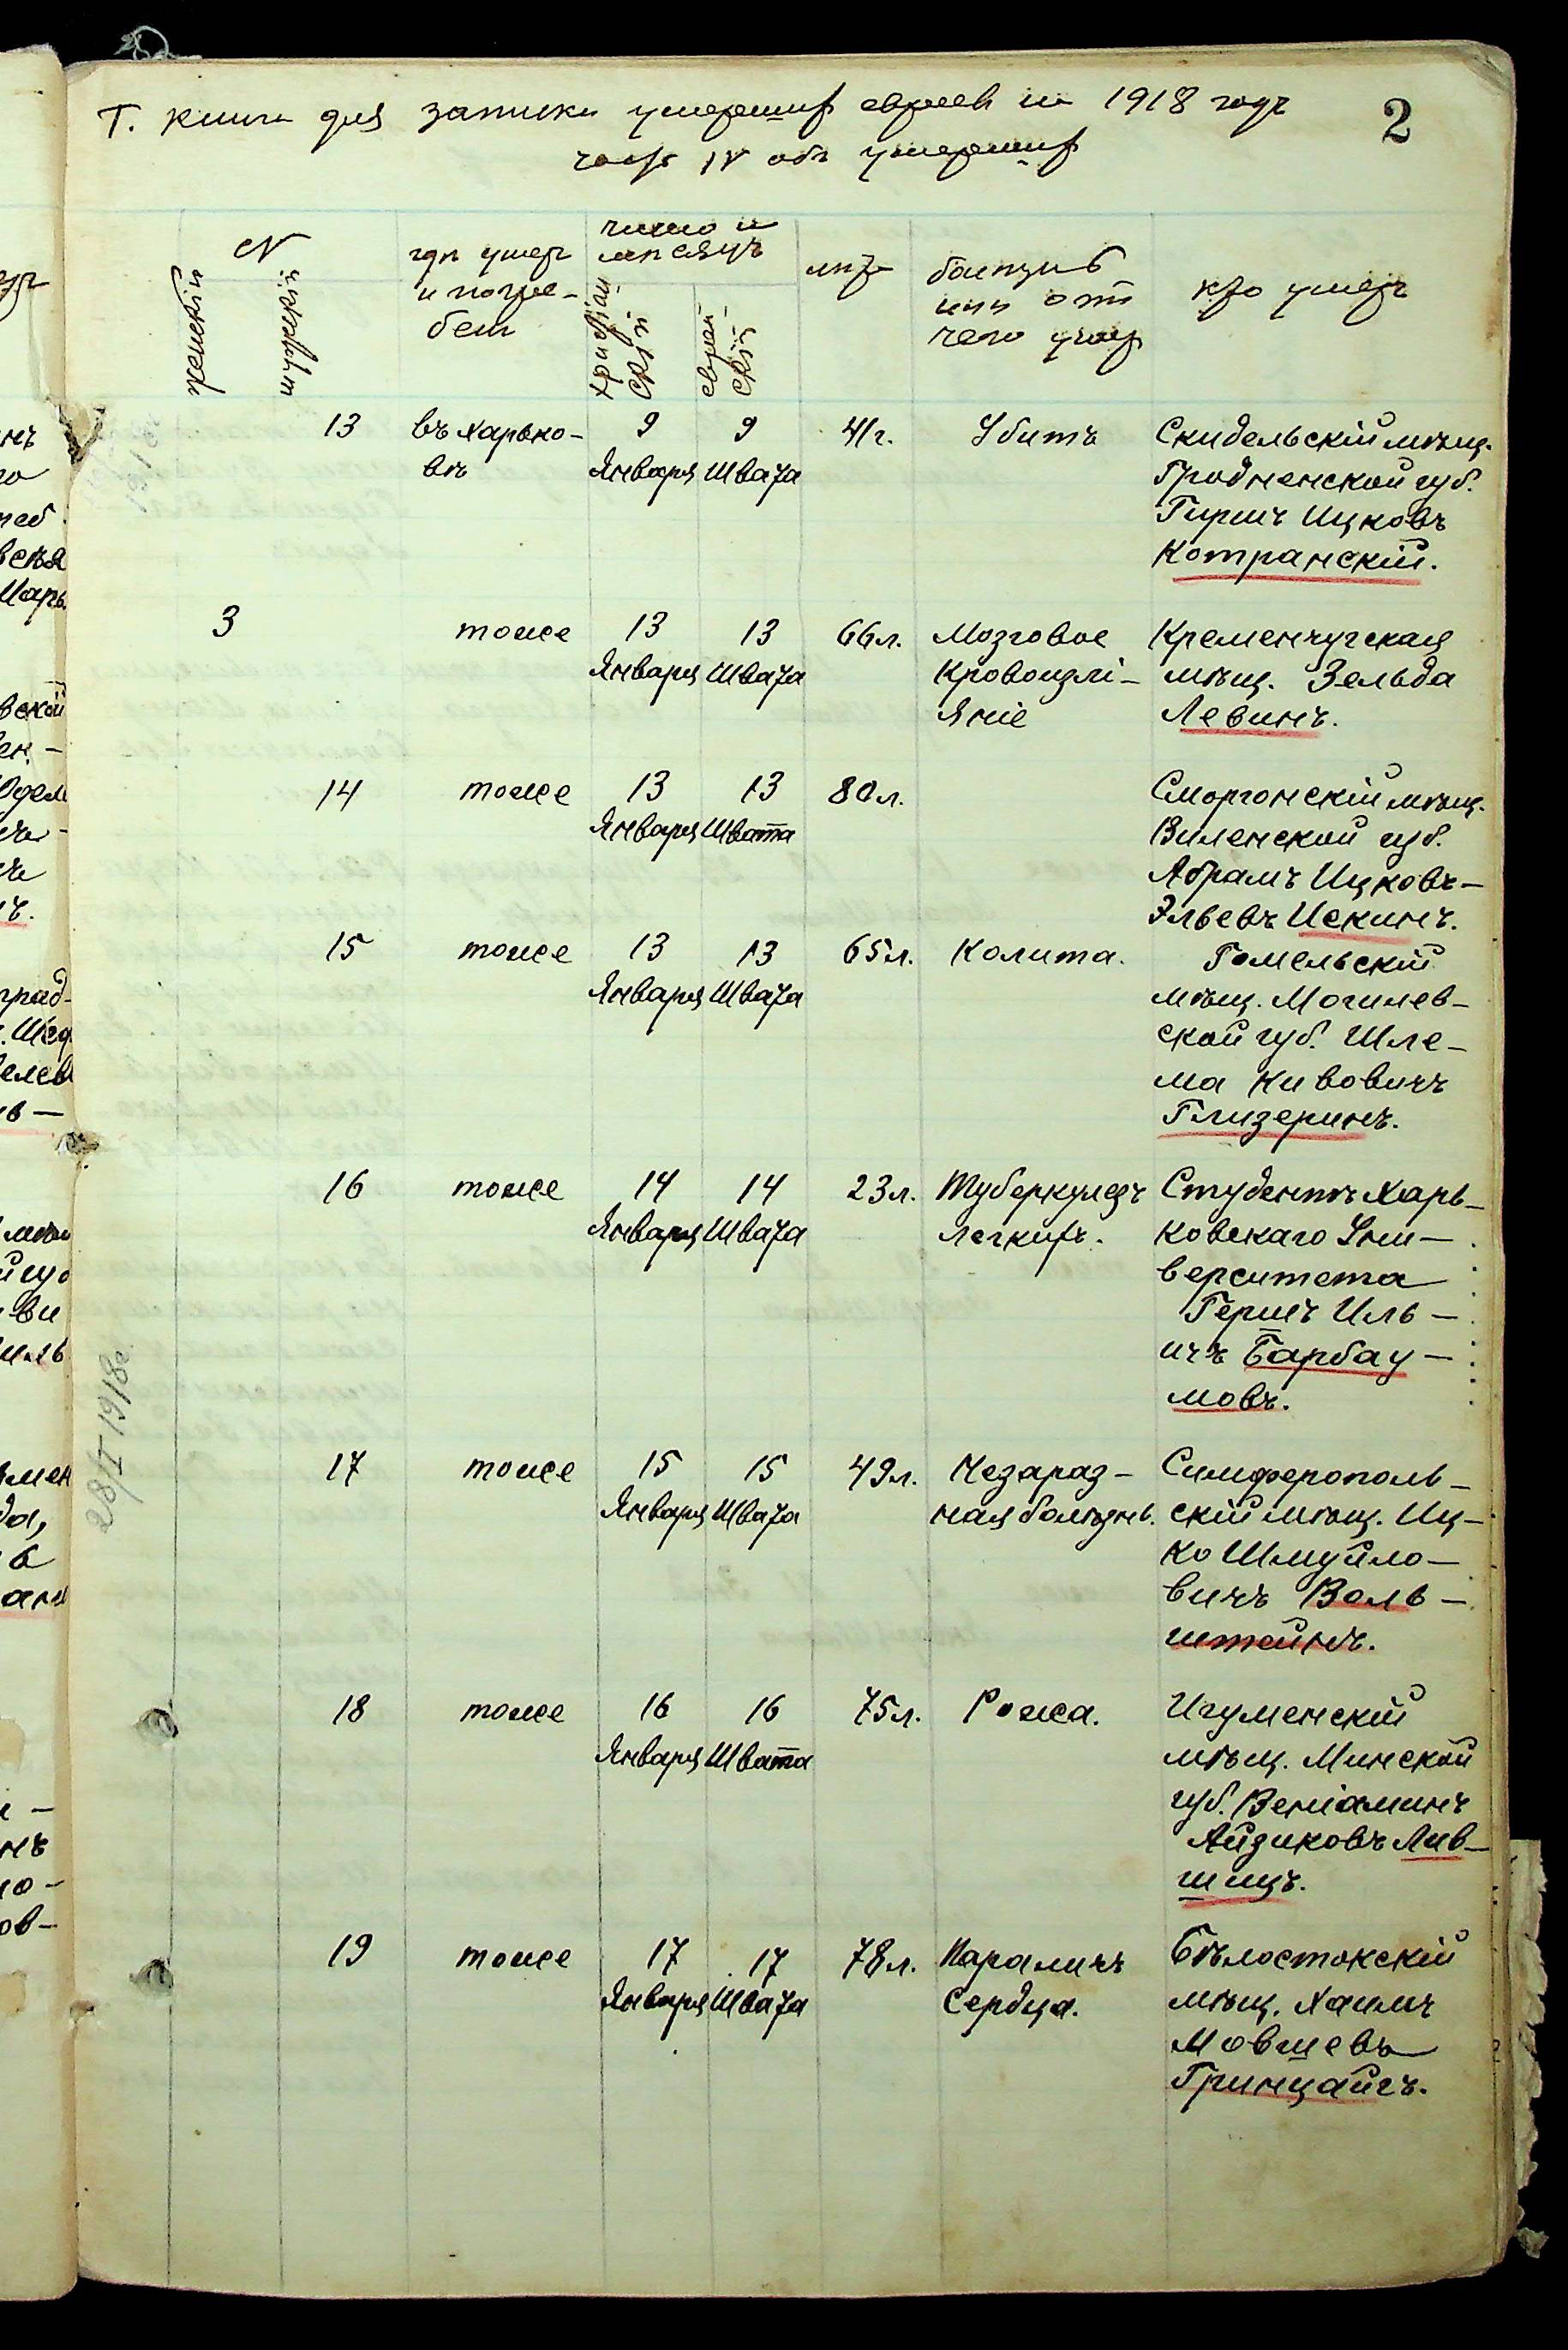 Т. книги для записки умерших евреев на 1918 годъ
2
часть IV объ умерших
N
женскiй
мужской
гдѣ умер
и погре-
бен
число и
мѣсяцъ
христiан
скiй
еврей-
скiй
лѣта
болѣзнь
или от
чего умер
кто умеръ
13
въ Харько-
вѣ
9
Января
9
Швата
41г.
Убитъ
Скидельскiй мѣщ.
Гродненской губ.
Гиршъ Ицковъ
Котранскiй.
3
тоже
13
Января
13
Швата
66л.
Мозговое
кровоизлi-
янiе
Кременчугская
мѣщ. Зельда
Левинъ.
14
тоже
13
Января
13
Швата
80л.
Сморгонскiй мѣщ.
Виленской губ.
Абрамъ Ицковъ-
Эльевъ Искинъ.
15
тоже
13
Января
13
Швата
65л.
Колита.
Гомельскiй
мѣщ. Могилев-
ской губ. Шле-
ма Кивовичъ
Глизеринъ.
16
тоже
14
Января
14
Швата
23л.
Туберкулезъ
легкихъ.
Студентъ Харь-
ковскаго Уни-
верситета
Гершъ Иль-
ичъ Барбау-
мовъ.
28/I 1918г.
17
тоже
15
Января
15
Швата
49л.
Незараз-
ная болѣзнь.
Симферополь-
скiй мѣщ. Иц-
ко Шмуйло-
вичъ Воль-
штейнъ.
18
тоже
16
Января
16
Швата
75л.
Рожа.
Игуменскiй
мѣщ. Минской
губ. Венiаминъ
Айзиковъ Лив-
шицъ.
19
тоже
17
Января
17
Швата
78л.
Параличъ
сердца.
Бѣлостокскiй
мѣщ. Хаимъ
Мовшевъ
Гринцайгъ.